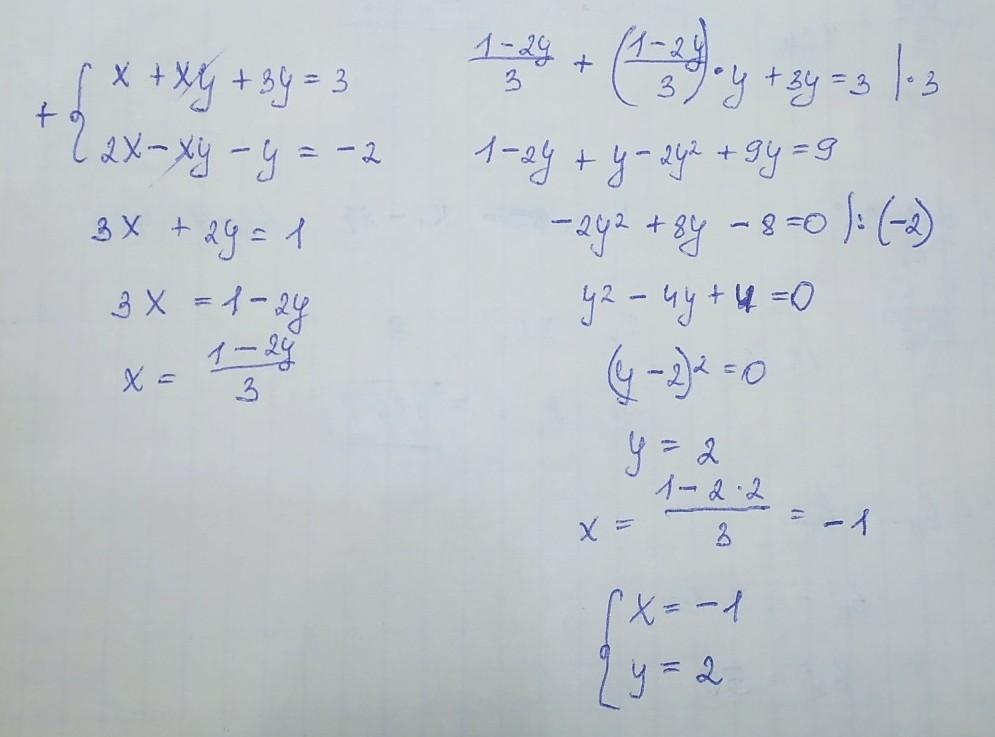 + { x + xy + 3y = 3
2x - xy - y = -2
3x + 2y = 1
3x = 1 - 2y
x = (1 - 2y)/3
(1-2y)/3 + ((1-2y)/3) · y + 3y = 3 | · 3
1 - 2y + y - 2y² + 9y = 9
-2y² + 8y - 8 = 0 | : (-2)
y² - 4y + 4 = 0
(y - 2)² = 0
y = 2
x = (1 - 2 · 2)/3 = -1
{ x = -1
y = 2